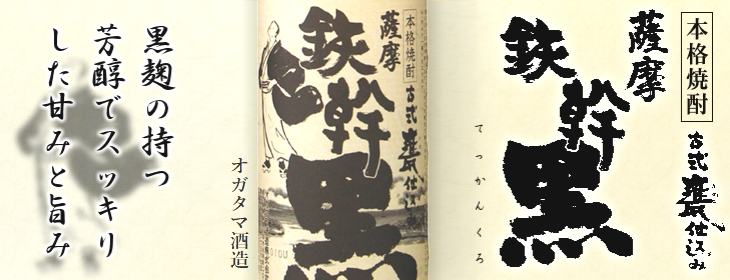 黒麹の持つ
芳醇でスッキリ
した甘みと旨み
オガタマ酒造
本格焼酎
薩摩
鉄幹
黒
古式甕仕込み
本格焼酎
薩摩
鉄幹
黒
てっかんくろ
古式甕仕込み